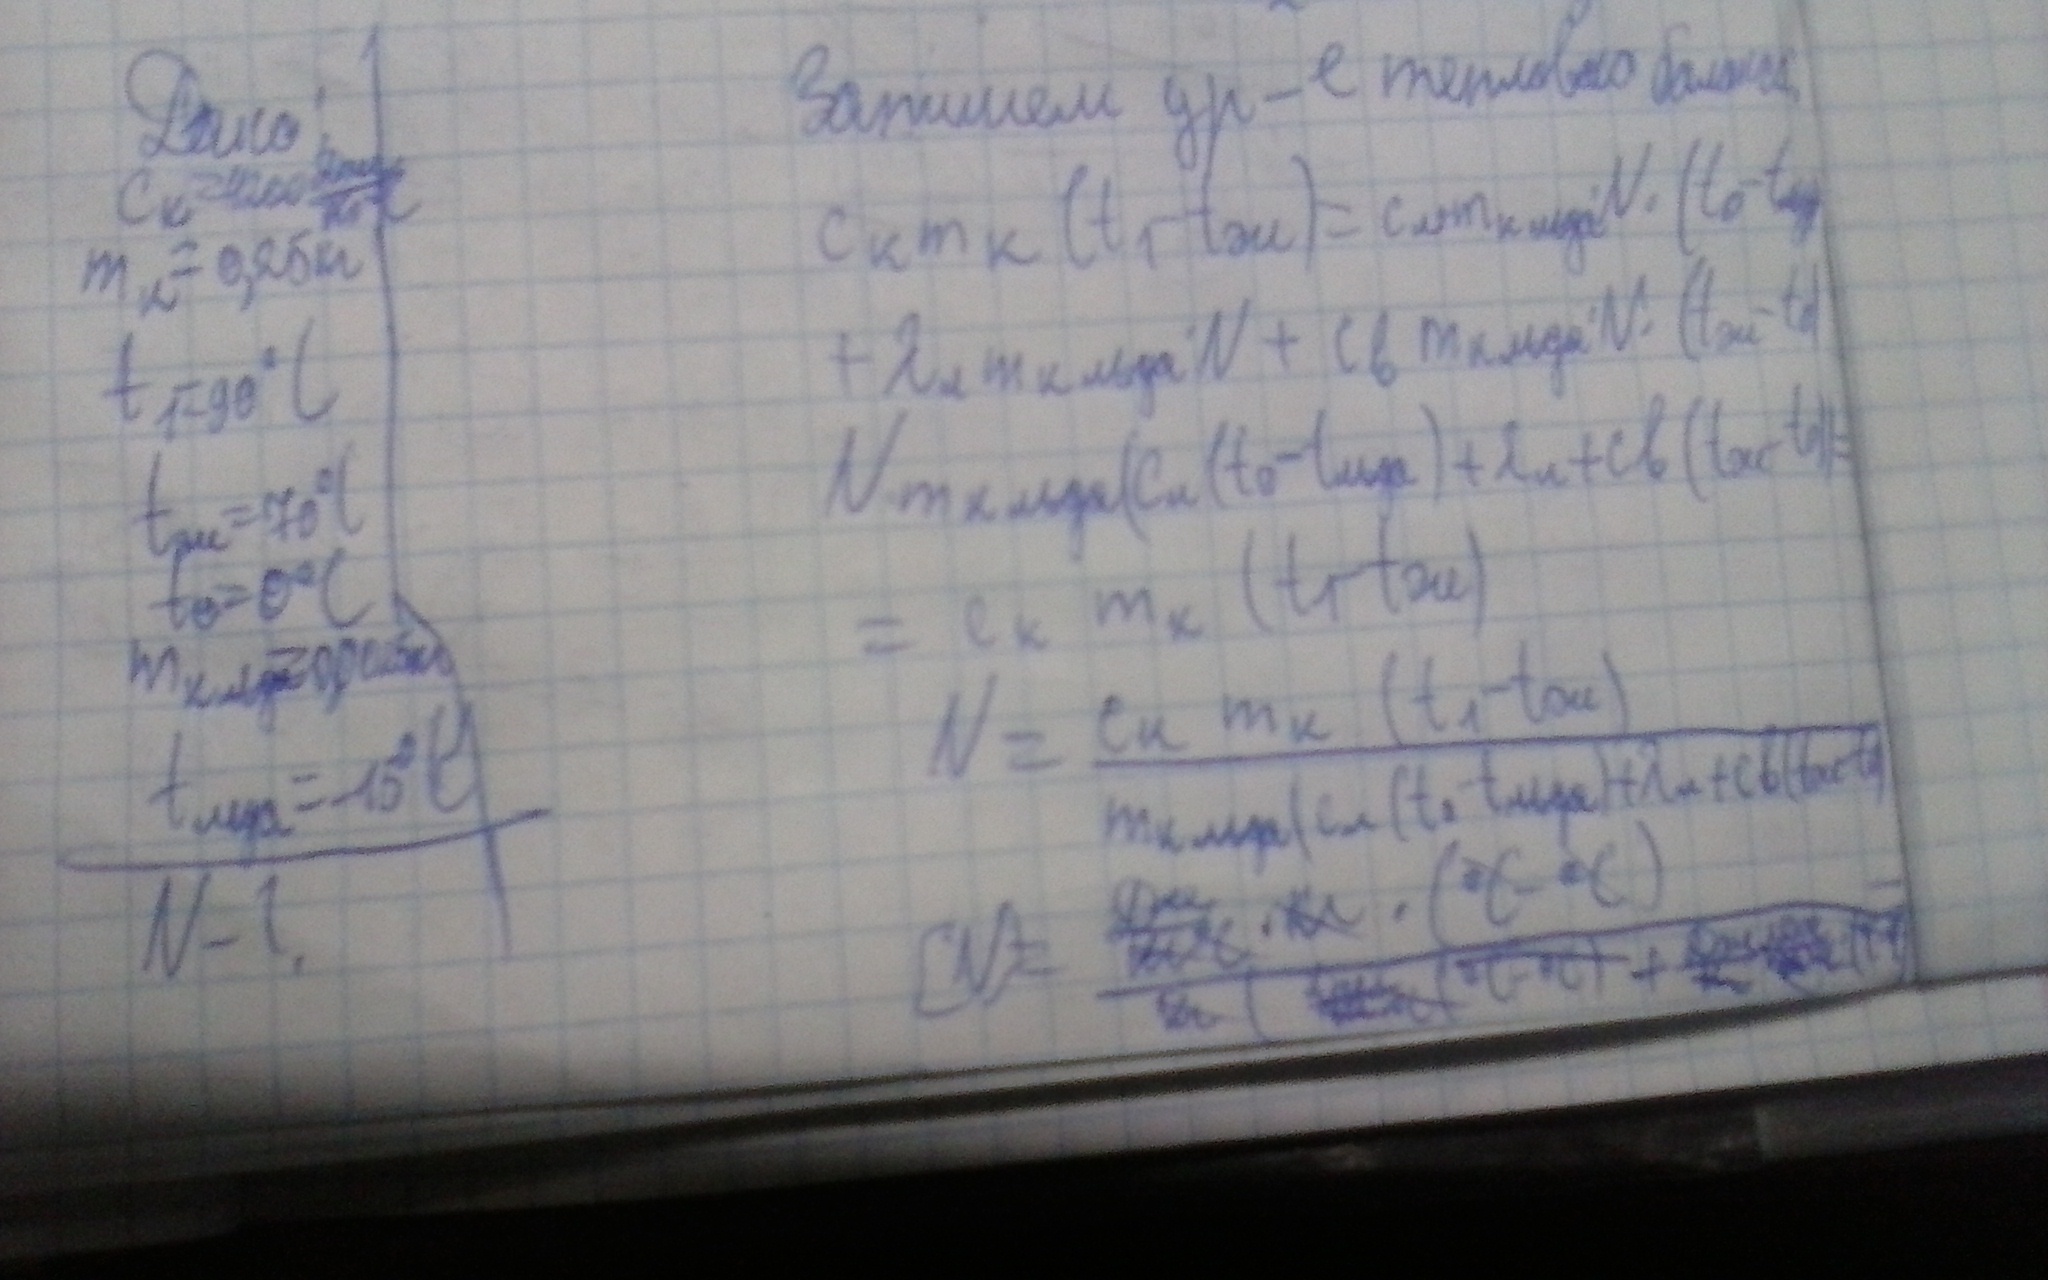 Дано:
cк = 4200 Дж/кг°C
mк = 0,25 кг
t1 = 90°C
tж = 70°C
t0 = 0°C
mк льда =
tльда = -15°C
N - ?
Запишем ур-е теплового баланса
cк mк (t1 - tж) = cл mк льда · N · (t0 - tльда)
+ λл mк льда · N + cв mк льда · N · (tж - t0)
N mк льда (cл (t0 - tльда) + λл + cв (tж - t0)) =
= cк mк (t1 - tж)
N = cк mк (t1 - tж) / mк льда (cл (t0 - tльда) + λл + cв (tж - t0))
[N] = Дж/кг°C · кг · (°C - °C) / кг (